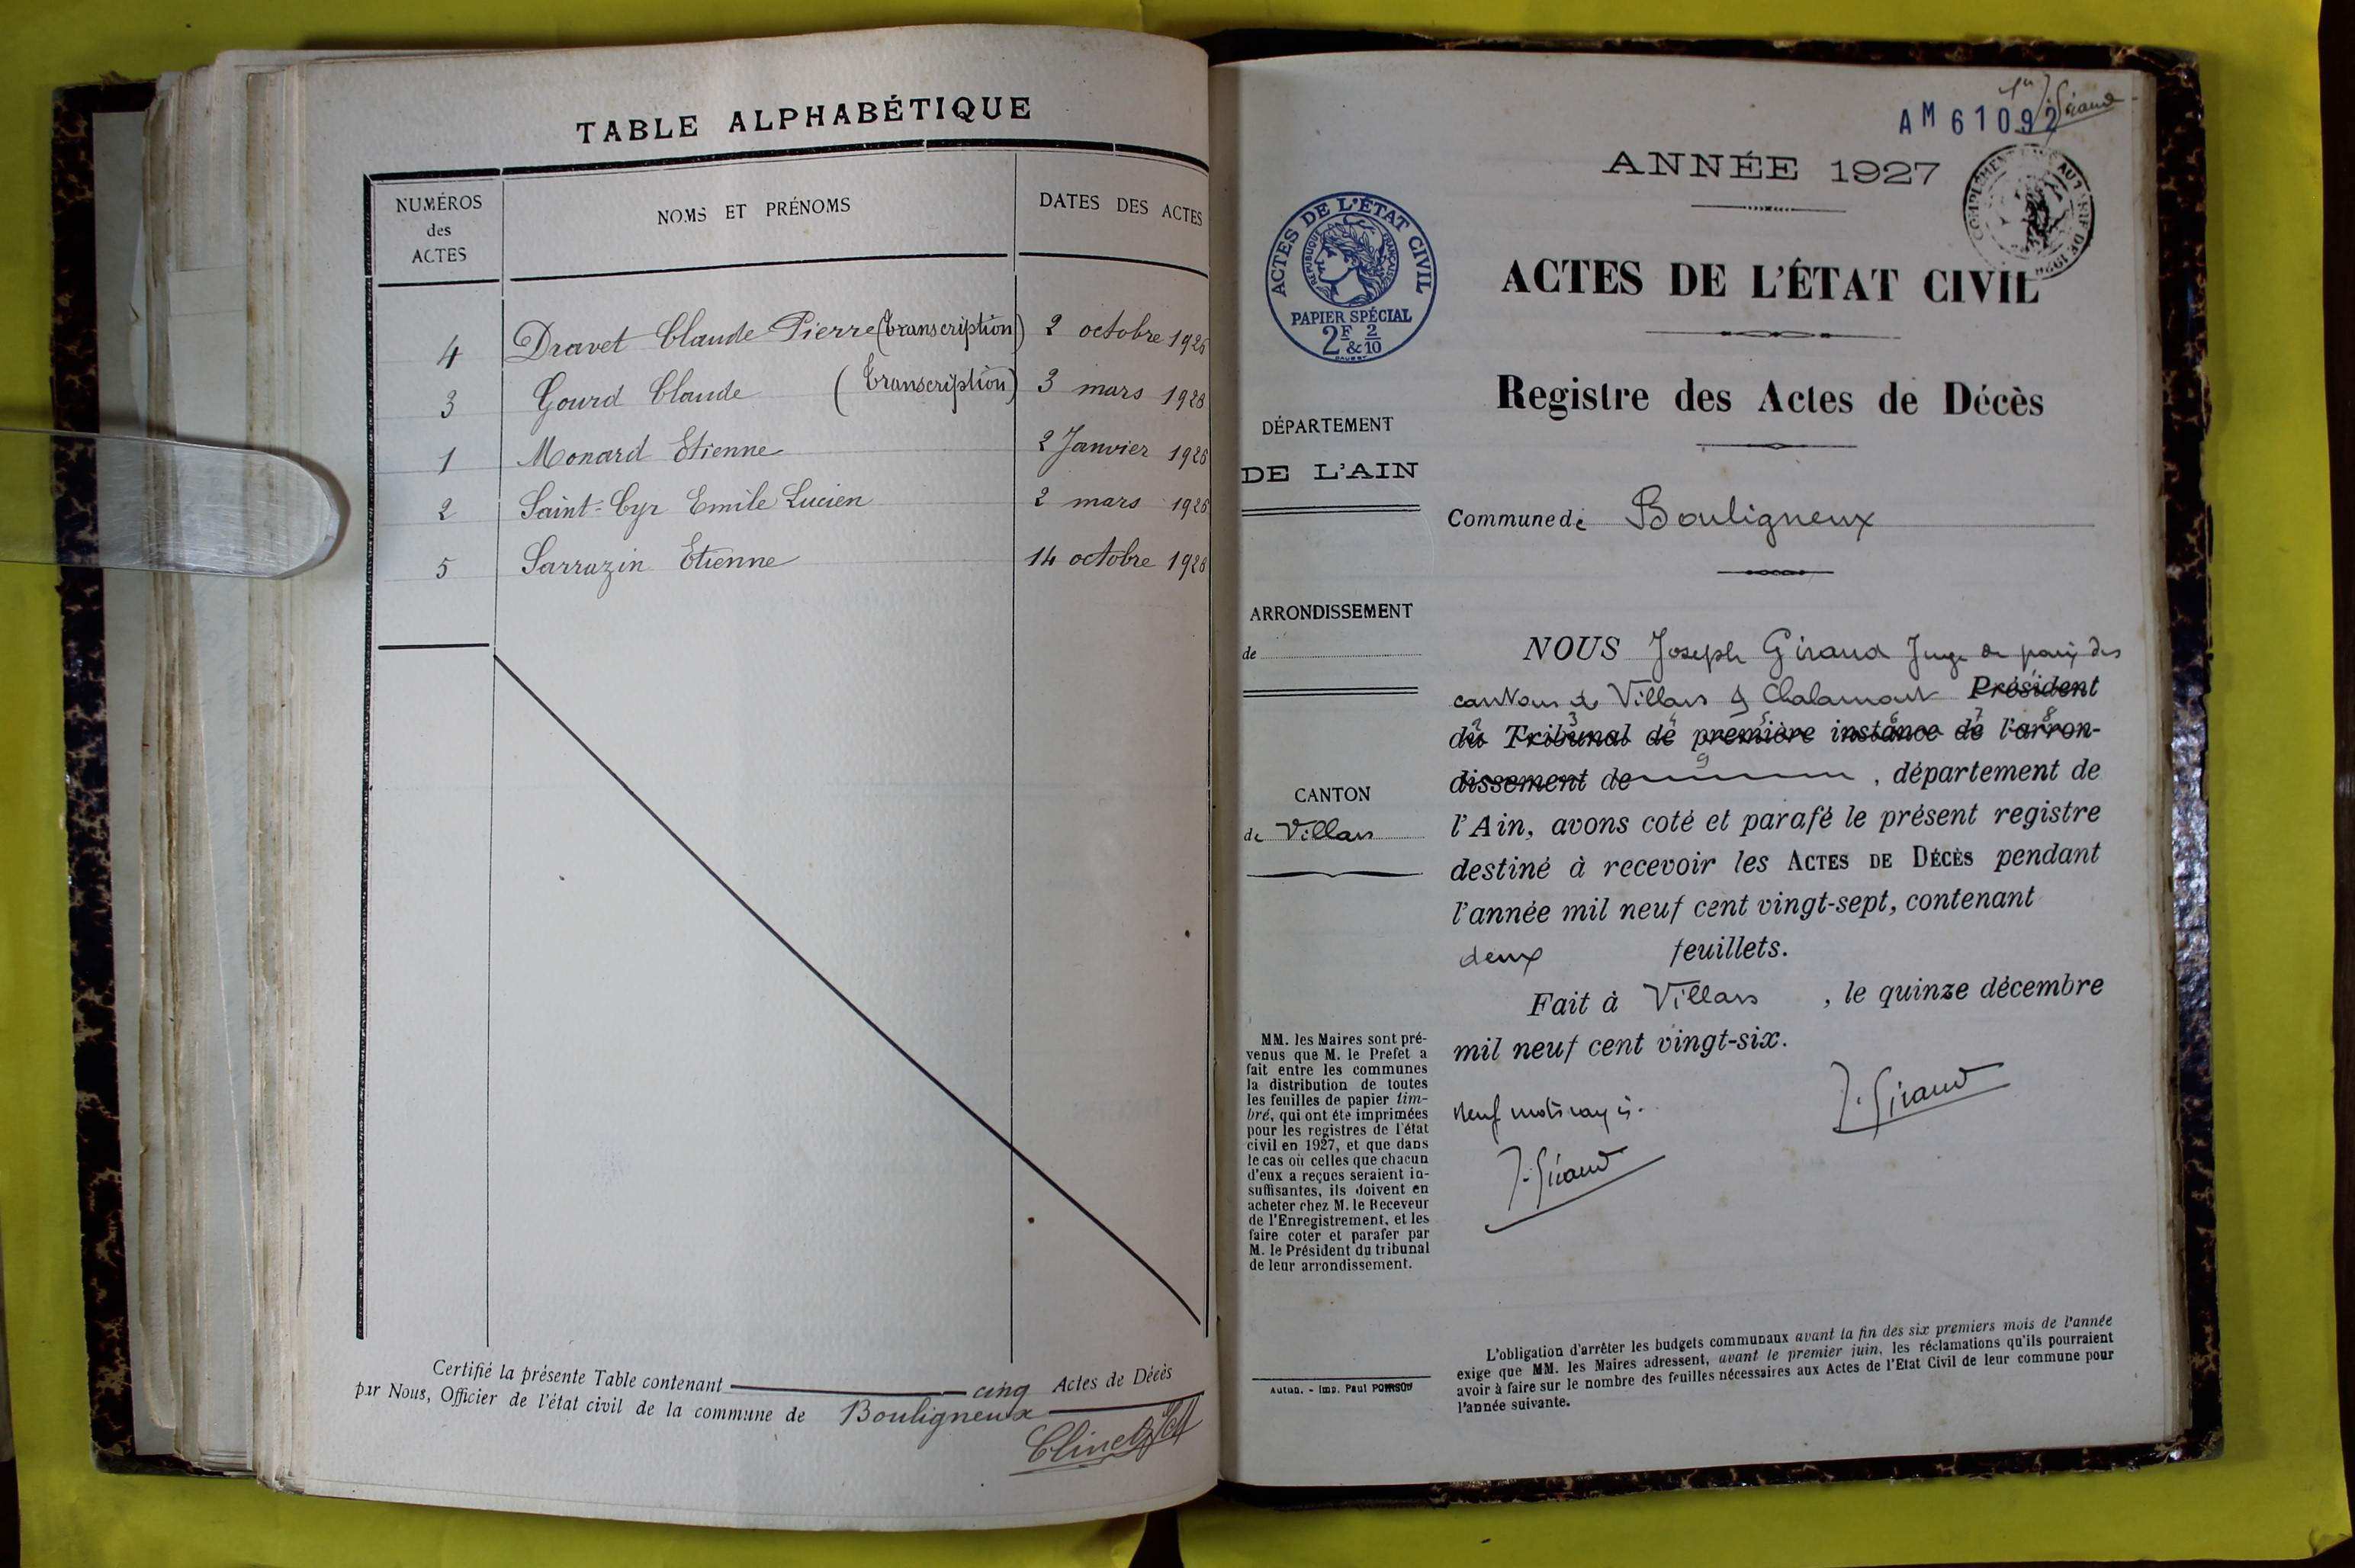 TABLE ALPHABÉTIQUE
NUMÉROS
des
ACTES
NOMS ET PRÉNOMS
DATES DES ACTES
4 Dravet Claude Pierre (transcription) 2 octobre 1926
3 Gourd Claude (transcription) 3 mars 1926
1 Monard Etienne 2 Janvier 1926
2 Saint-Cyr Emile Lucien 2 mars 1926
5 Sarrazin Etienne 14 octobre 1926
Certifié la présente Table contenant cinq Actes de Décès
par Nous, Officier de l'état civil de la commune de Bouligneux
1er J. Giraud
AM 61092
ANNÉE 1927
ACTES DE L'ÉTAT CIVIL
RÉPUBLIQUE FRANÇAISE
PAPIER SPÉCIAL
2F & 2/10
ACTES DE L'ÉTAT CIVIL
Registre des Actes de Décès
DÉPARTEMENT
DE L'AIN
Commune de Bouligneux
ARRONDISSEMENT
de
CANTON
de Villars
NOUS Joseph Giraud Juge de paix des
cantons de Villars & Chalamont Président
du Tribunal de première instance de l'arron-
dissement de , département de
l'Ain, avons coté et parafé le présent registre
destiné à recevoir les ACTES DE DÉCÈS pendant
l'année mil neuf cent vingt-sept, contenant
deux feuillets.
Fait à Villars , le quinze décembre
mil neuf cent vingt-six.
J. Giraud
Neuf mots rayés.
J. Giraud
MM. les Maires sont pré-
venus que M. le Prefet a
fait entre les communes
la distribution de toutes
les feuilles de papier tim-
bré, qui ont été imprimées
pour les registres de l'état
civil en 1927, et que dans
le cas où celles que chacun
d'eux a reçues seraient in-
suffisantes, ils doivent en
acheter chez M. le Receveur
de l'Enregistrement, et les
faire coter et parafer par
M. le Président du tribunal
de leur arrondissement.
Autun. - Imp. Paul
L'obligation d'arrêter les budgets communaux avant la fin des six premiers mois de l'année
exige que MM. les Maires adressent, avant le premier juin, les réclamations qu'ils pourraient
avoir à faire sur le nombre des feuilles nécessaires aux Actes de l'Etat Civil de leur commune pour
l'année suivante.